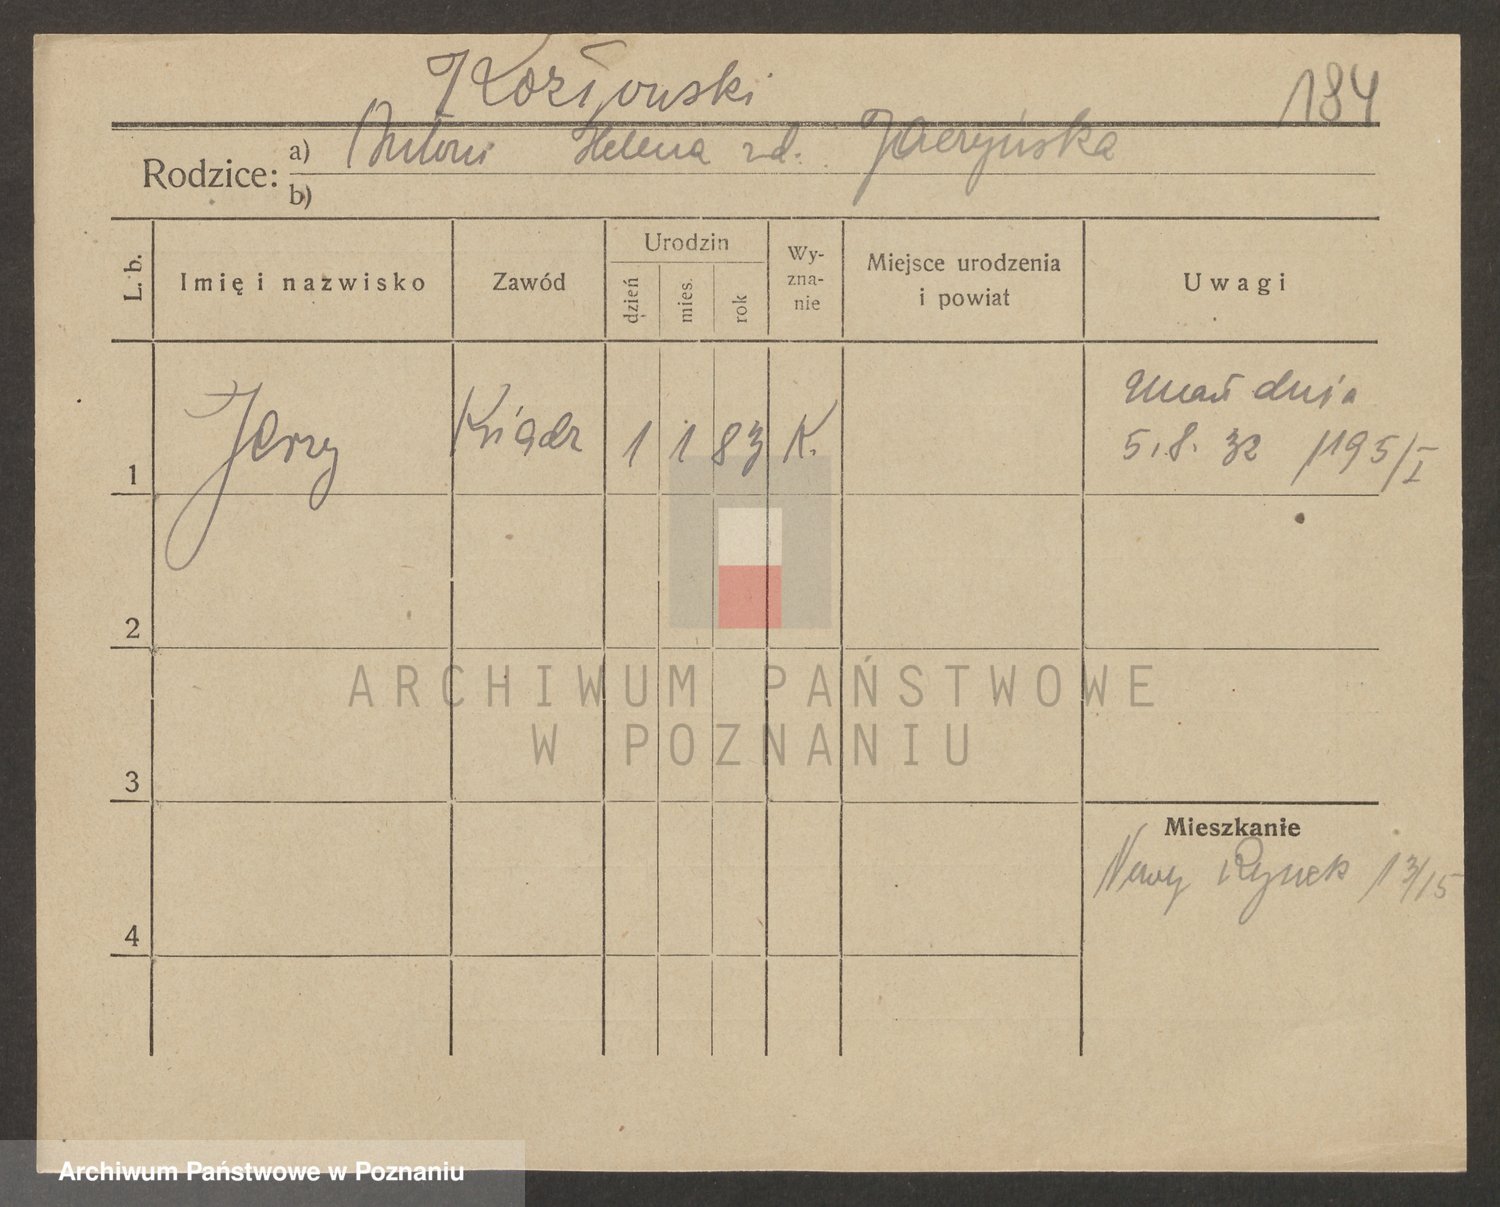 Kozłowski
184
Rodzice: a) Antoni Helena zd. Jaczyńska
b)
L. b.
Imię i nazwisko
Zawód
Urodzin
dzień
mies.
rok
Wy-
zna-
nie
Miejsce urodzenia
i powiat
Uwagi
1 Jerzy 1 1 83 K.
Zmarł dnia
5.8. 32 /195/I
2
3
4
Mieszkanie
Nowy Rynek 13/15
ARCHIWUM PAŃSTWOWE
W POZNANIU
Archiwum Państwowe w Poznaniu